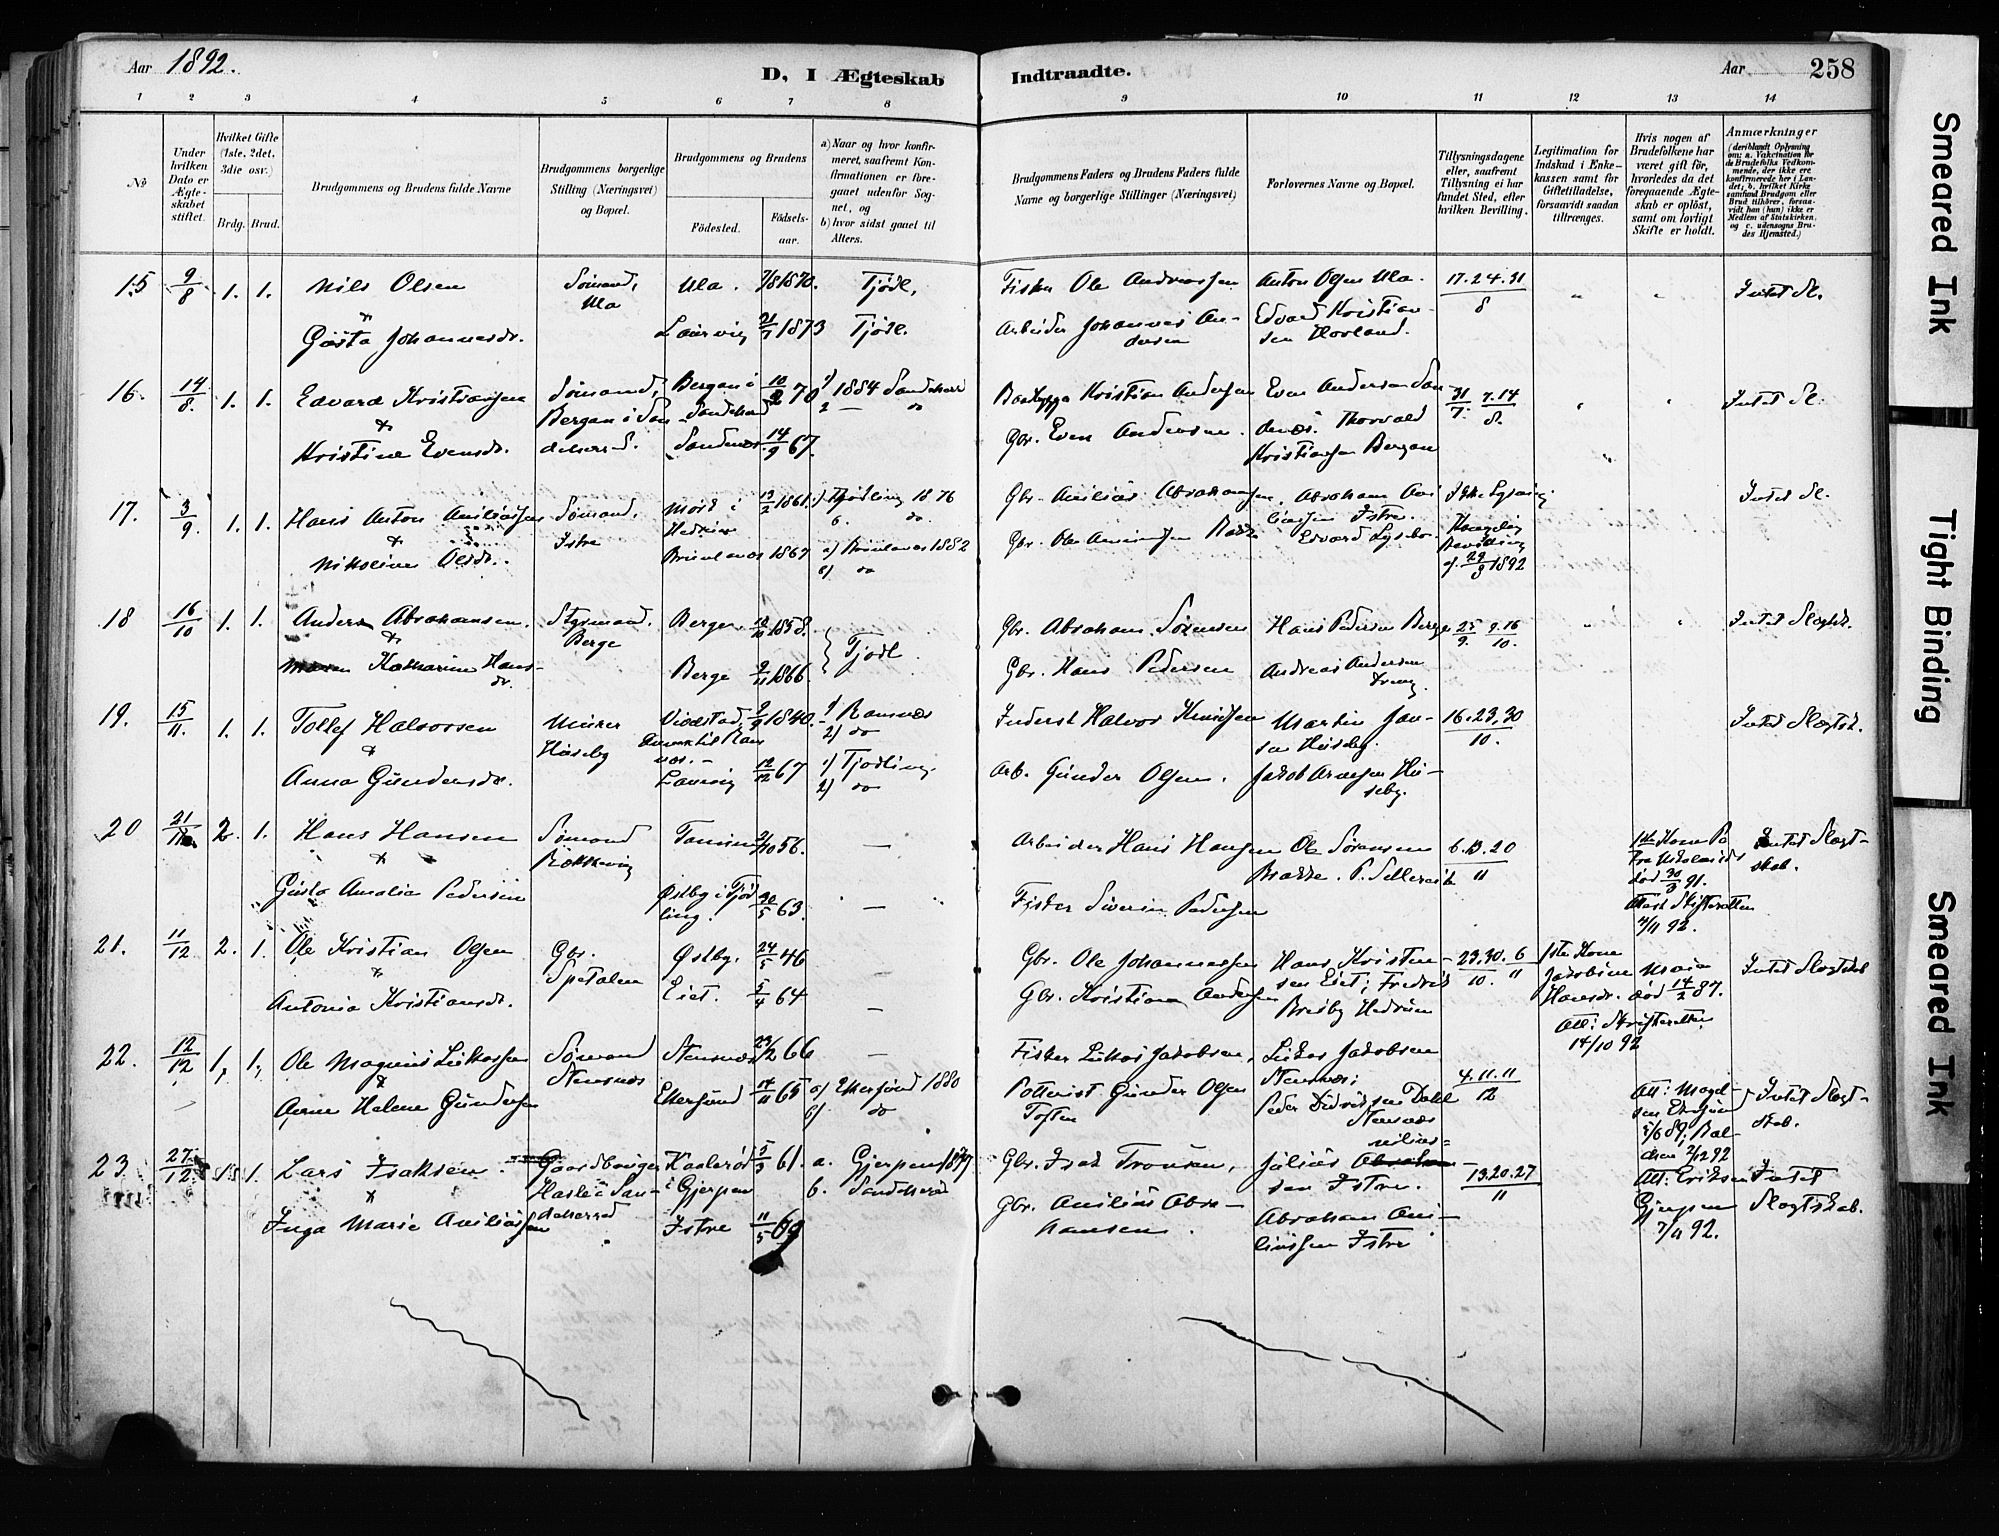 Aar 1892.
D, I Ægteskab Indtraadte.
Aar 258
1 2 3 4 5 6 7 8 9 10 11 12 13 14
No
Under hvilken Dato er Ægteskabet stiftet.
Hvilket Gifte (1ste, 2det, 3die osv.)
Brdg. Brud.
Brudgommens og Brudens fulde Navne
Brudgommens borgerlige Stilling (Næringsvei) og Bopæl.
Brudgommens og Brudens
Fødested. Fødselsaar.
a) Naar og hvor konfirmeret, saafremt Konfirmationen er foregaaet udenfor Sognet, og
b) hvor sidst gaaet til Alters.
Brudgommens Faders og Brudens Faders fulde Navne og borgerlige Stillinger (Næringsvei)
Forlovernes Navne og Bopæl.
Tillysningsdagene eller, saafremt Tillysning ei har fundet Sted, efter hvilken Bevilling.
Legitimation for Indskud i Enkekassen samt for Giftetilladelse, forsaavidt saadan tiltrænges.
Hvis nogen af Brudefolkene har været gift før, hvorledes da det foregaaende Ægteskab er opløst, samt om lovligt Skifte er holdt.
Anmærkninger (deriblandt Oplysning om: a. Vakcination for de Brudefolks Vedkommende, der ikke ere konfirmerede her i Landet; b. hvilket Kirkesamfund Brudgom eller Brud tilhører, forsaavidt han (hun) ikke er Medlem af Statskirken, og c. udensogns Brudes Hjemsted.)
15 9/8 1. 1. Nils Olsen Sømand, Ula Ula. 7/8 1870. Tjødl, Fisker Ole Andreassen Anton Olsen Ula. 17.24.31/8 Intet Sl.
Gusta Johannesdr. Laurvig 21/7 1873 Tjødl. Arbeider Johannes Andersen Edvard Kristiansen Hovland.
16. 14/8. 1. 1. Edvard Kristiansen Sømand, Bergan i Sandeherred. Bergan i Sandeherred 10/2 70 1) 1884 Sandeherred 2 — do Kristian Andersen Even Andersen Sandenæs. 31/7. 7.14/8. Intet Sl.
&
Kristine Evensdr. Sandenæs. 14/9 67. Gbr. Even Andersen. Thorvald Kristiansen Bergan
17. 3/9. 1. 1. Hans Anton Aniliassen Sømand, Istre Hedrum 1861. Tjødling 1876 b. do. Gbr. Anilias Abrahamsen, Abraham Aniliassen Istre. Intet Sl.
&
Nikoline Olsdr. Brunlanes 1867 a) Brunlanes 1882 b) do Edvard 1892
18 16/10 1. 1. Anders Abrahamsen. Styrmand. Berge Berge 1858. Tjødl. Gbr. Abraham Sørensen Hans Pedersen Berge 25/9. 9.16/10. Intet Slægtsk.
&
Maren Katharine Hansdr. Berge 9/11 1866. Gbr. Hans Pedersen Andreas Andersen
19. 15/11. 1. 1. Tollef Halvorsen Murer Huseby 1840. 1) Ramnæs 2) do Inderst Halvor Knudsen Martin Jansen Huseby. 16.23.30/10. Intet Slægtsk.
&
Anna Gundersdr. Laurvig 12/12 67 1) Tjødling. 2) do Arb. Gunder Olsen. Jakob Arnesen Huseby.
20 21/11 2. 1. Hans Hansen Sømand 56. — Arbeider Hans Hansen Ole Sørensen 6.13.20/11 død 30/3 91. Attest Skifteretten 4/11 92. Intet Slægtskab.
&
Gusta Amalia Pedersen Østby i Tjødling. 63. — Fisker Severin Pedersen
21. 11/12 2. 1. Ole Kristian Olsen Gbr. Spetalen Østby. 24/5 46 Gbr. Ole Johannessen Hans Kristensen Eiet; Fredrik Hedrum 23.30./10. 6/11 1ste Kone Jakobine Maria Hansdr. død 14/2 87. Att: Skifteretten 14/10 92 Intet Slægtskab
&
Antonia Kristiansdr. Eiet. 5/4 64 — Gbr. Kristian Andersen
22. 12/12 1, 1., Ole Magnus Lukassen Sømand Stensnæs Stensnæs 66 — Fisker Lukas Jakobsen, Lukas Jakobsen Stensnæs; 4.11.11/12
&
Anne Helene Gundersen Ekersund 14/11 65 a) Ekersund 1880 b) do Gunder Olsen Toften Peder Dahl Stensnæs 5/6 89; 2/12 92 Intet Slægtskab.
23. 27/12 1. Lars Isaksen. Gaardbruger Hasle i Sandeherred i Gjerpen 5/3 61. a. Gjerpen 1877 b. Sandeherred Gbr. Isak Tronsen, Julius Aniliassen Istre. 13.20.27/11 Att: Eriksen Gjerpen 7/11 92. Intet Slægtskab.
&
Inga Marie Aniliassen Istre 11/5 Gbr. Anilias Abrahamsen. Abraham Aniliassen Istre
Smeared Ink
Tight Binding
Smeared Ink